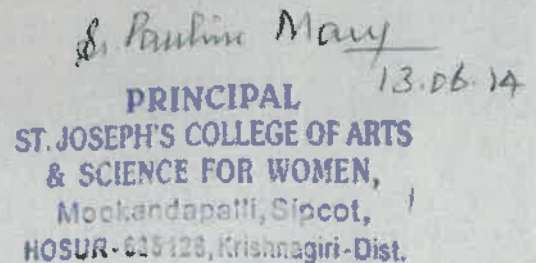 S. Pauline Mary
13.06.14
PRINCIPAL
ST. JOSEPH'S COLLEGE OF ARTS
& SCIENCE FOR WOMEN,
Mookandapatti, Sipcot,
HOSUR-635126, Krishnagiri-Dist.